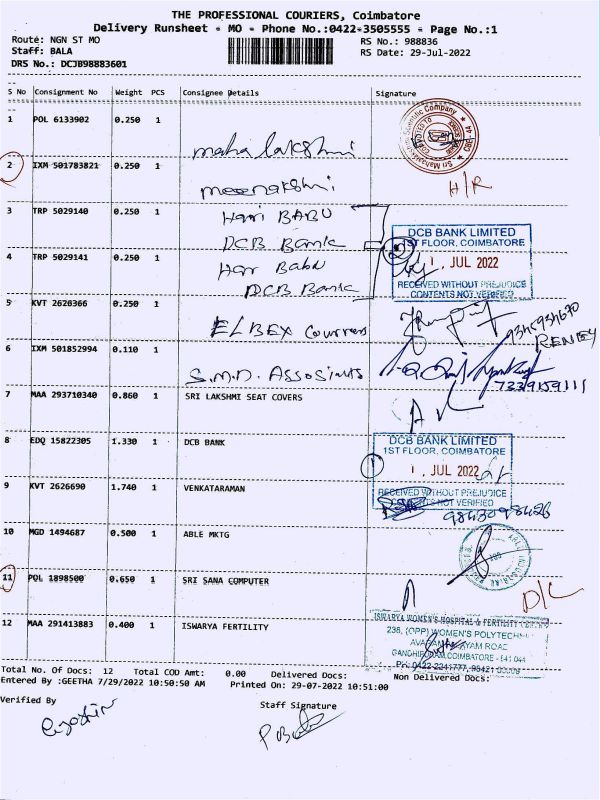 THE PROFESSIONAL COURIERS, Coimbatore
Delivery Runsheet * MO * Phone No.:0422-3505555 * Page No.:1
Route: NGN ST MO
RS No.: 988836
Staff: BALA
RS Date: 29-Jul-2022
DRS No.: DCJB98883601
S No Consignment No Weight PCS Consignee Details Signature
1 POL 6133902 0.250 1
maha lakshmi
Sri Mahalakshmi Scientific Company
2 IXM 501783821 0.250 1
meenakshmi
H/R
3 TRP 5029140 0.250 1 Hari BABU
DCB Bank
DCB BANK LIMITED
1ST FLOOR, COIMBATORE
4 TRP 5029141 0.250 1 Hari Babu
DCB Bank
1. JUL 2022
RECEIVED WITHOUT PREJUDICE
CONTENTS NOT VERIFIED
5 KVT 2620366 0.250 1
ELBEX Couriers
RENJEY
6 IXM 501852994 0.110 1
S.M.D. Associats
7339159111
7 MAA 293710340 0.860 1 SRI LAKSHMI SEAT COVERS
8 EDQ 15822305 1.330 1 DCB BANK
DCB BANK LIMITED
1ST FLOOR, COIMBATORE
1. JUL 2022
9 KVT 2626690 1.740 1 VENKATARAMAN
RECEIVED WITHOUT PREJUDICE
NOT VERIFIED
9843098426
10 MGD 1494687 0.500 1 ABLE MKTG
11 POL 1898500 0.650 1 SRI SANA COMPUTER
D/L
12 MAA 291413883 0.400 1 ISWARYA FERTILITY
ISWARYA WOMEN'S HOSPITAL & FERTILITY
236, (OPP) WOMEN'S POLYTECHNIC
ROAD
GANDHIPURAM, COIMBATORE - 641 044
Ph: 0422-2241777
Total No. Of Docs: 12 Total COD Amt: 0.00 Delivered Docs: Non Delivered Docs:
Entered By :GEETHA 7/29/2022 10:50:50 AM Printed On: 29-07-2022 10:51:00
Verified By Staff Signature